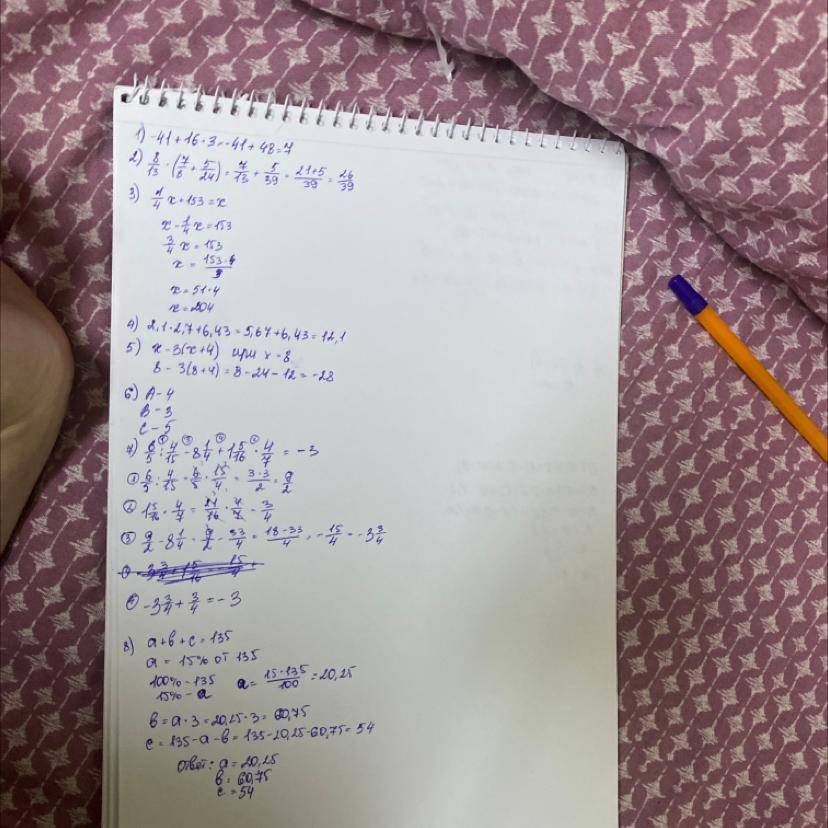 1) -41+16·3=-41+48=7
2) 8/13·(7/8+5/24)=7/13+5/39=21+5/39=26/39
3) 1/4x+153=x
x-1/4x=153
3/4x=153
x=153·4/3
x=51·4
x=204
4) 2,1·2,7+6,43=5,67+6,43=12,1
5) x-3(x+4) при x-8
8-3(8+4)=8-24-12=-28
6) A-4
B-3
C-5
7) 6/5:4/15-8 1/4+1 5/16·4/7=-3
① 6/5:4/15=6/5·15/4=3·3/2=9/2
② 1 5/16·4/7=21/16·4/7=3/4
③ 9/2-8 1/4=9/2-33/4=18-33/4=-15/4=-3 3/4
④ -3 3/4+3/4=-3
8) a+b+c=135
a=15% от 135
100%-135 a=15·135/100=20,25
15%-a
b=a·3=20,25·3=60,75
c=135-a-b=135-20,25-60,75=54
Ответ: a=20,25
b=60,75
c=54